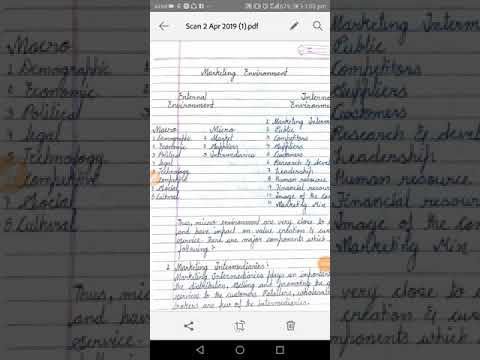 Scan 2 Apr 2019 (1).pdf
Marketing Environment
External
Environment
Intern
Environm
Macro
1 Demographic
2 Economic
3 Political
4 legal
5 Technology
6 Competitive
7 Social
8 Cultural
Micro
1 Market
2 Suppliers
3 Intermediaries
1 Marketing Interm
2 Public
3 Competitors
4 Suppliers
5 Customers
6 Research & deve
7 Leadership
8 Human resource
9 Financial resour
10 Image of the co
11 Marketing Mix
Thus, micro environment are very close to
and have impact on value creation & cu
service. There are major components which
following :
1 Marketing Intermediaries :
Marketing Intermediaries plays an importan
the distribution, selling and promoting the g
services to the customers. Retailers, wholesale
are few of the intermediaries.
Macro
1 Demographic
2 Economic
3 Political
4 legal
Technology
Competitive
Social
8 Cultural
Thus, mic
and have
service.
Marketing Interm
Public
Competitors
Suppliers
Customers
Research & deve
Leadership
Human resource
Financial resour
Image of the co
Marketing Mix
very close to
creation & cu
components which